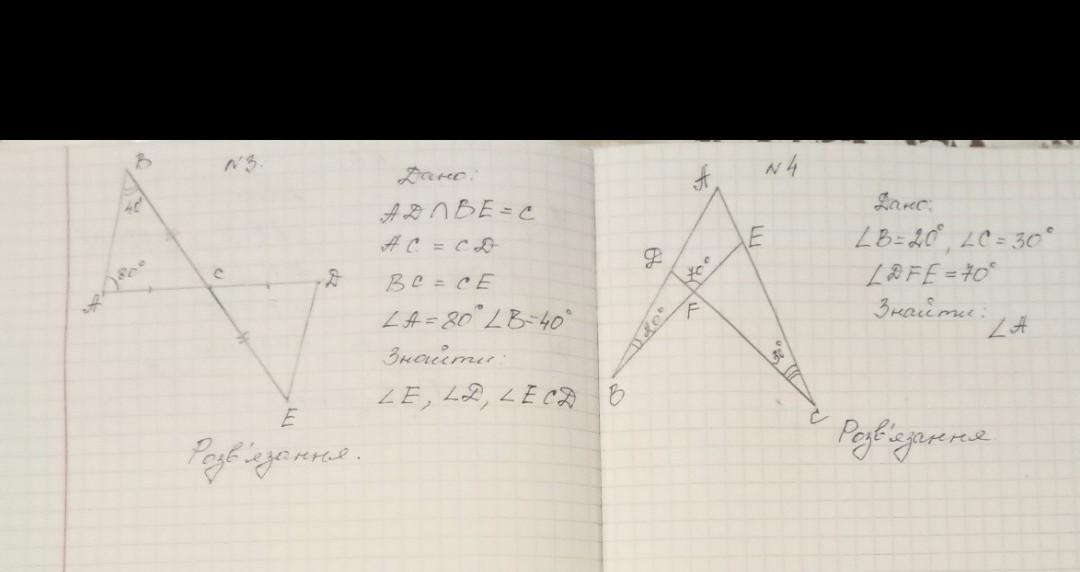 N3.
B
40°
80°
A
C
D
E
Дано:
AD∩BE=C
AC = CD
BC = CE
∠A=80° ∠B=40°
Знайти:
∠E, ∠D, ∠ECD
Розв'язання.
N4
A
E
D
70°
F
20°
30°
B
C
Дано:
∠B=20°, ∠C=30°
∠DFE=70°
Знайти:
∠A
Розв'язання